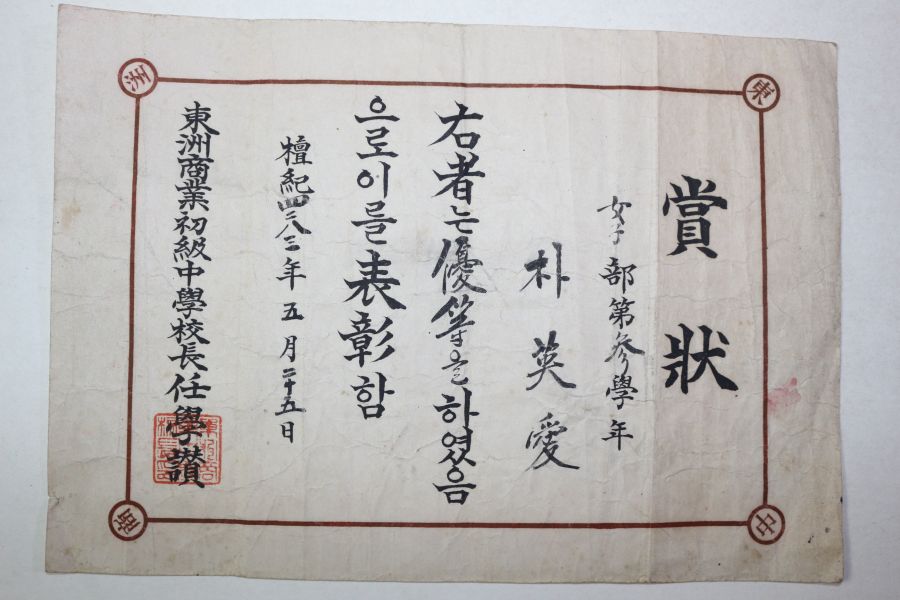 賞狀
女子部第參學年
朴英愛
右者는優等을하였음
으로이를表彰함
檀紀四二八三年五月二十五日
東洲商業初級中學校長任學讚
東
洲
商
中